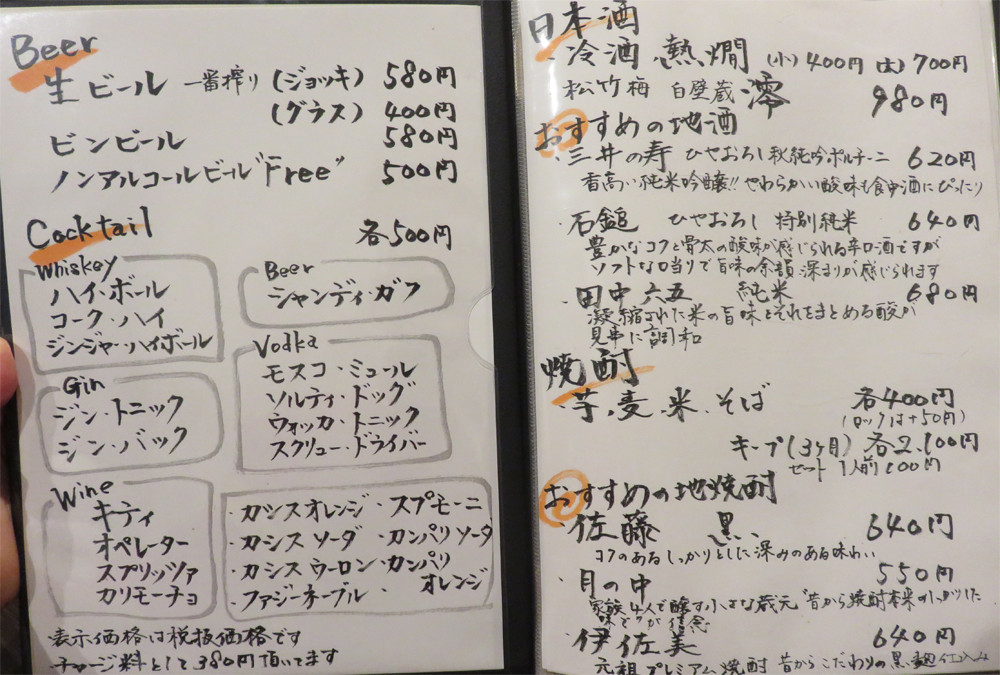 Beer
生ビール 一番搾り (ジョッキ) 580円
(グラス) 400円
ビンビール 580円
ノンアルコールビール"Free" 500円
Cocktail 各500円
Whiskey
ハイ・ボール
コーク・ハイ
ジンジャー・ハイボール
Beer
シャンディ・ガフ
Gin
ジン・トニック
ジン・バック
Vodka
モスコ・ミュール
ソルティ・ドッグ
ウォッカ・トニック
スクリュー・ドライバー
Wine
キティ
オペレーター
スプリッツァ
カリモーチョ
・カシスオレンジ ・スプモーニ
・カシスソーダ ・カンパリソーダ
・カシスウーロン ・カンパリ
オレンジ
・ファジーネーブル
表示価格は税抜価格です
チャージ料として380円頂いてます
日本酒
・冷酒 熱燗 (小)400円 (大)700円
松竹梅 白壁蔵 澪 980円
おすすめの地酒
・三井の寿 ひやおろし秋純吟ポルチーニ 620円
香高い純米吟醸!!やわらかい酸味も食中酒にぴったり
・石鎚 ひやおろし 特別純米 640円
豊かなコクと骨太の酸味が感じられる辛口酒ですが
ソフトな口当りで旨味の余韻 深まりが感じられます
・田中六五 純米 680円
凝縮された米の旨味とそれをまとめる酸が
見事に調和
焼酎
・芋、麦、米、そば 各400円
(ロックは+50円)
キープ(3ヶ月) 各2,100円
セット 1人前100円
おすすめの地焼酎
・佐藤 黒 640円
コクのあるしっかりとした深みのある味わい
・月の中 550円
家族4人で醸す小さな蔵元"昔から焼酎本来のしっかりした
味"が信念
・伊佐美 640円
元祖プレミアム焼酎 昔からこだわりの黒麹仕込み